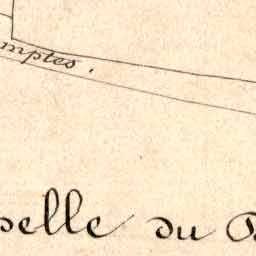 mptes.
pelle du